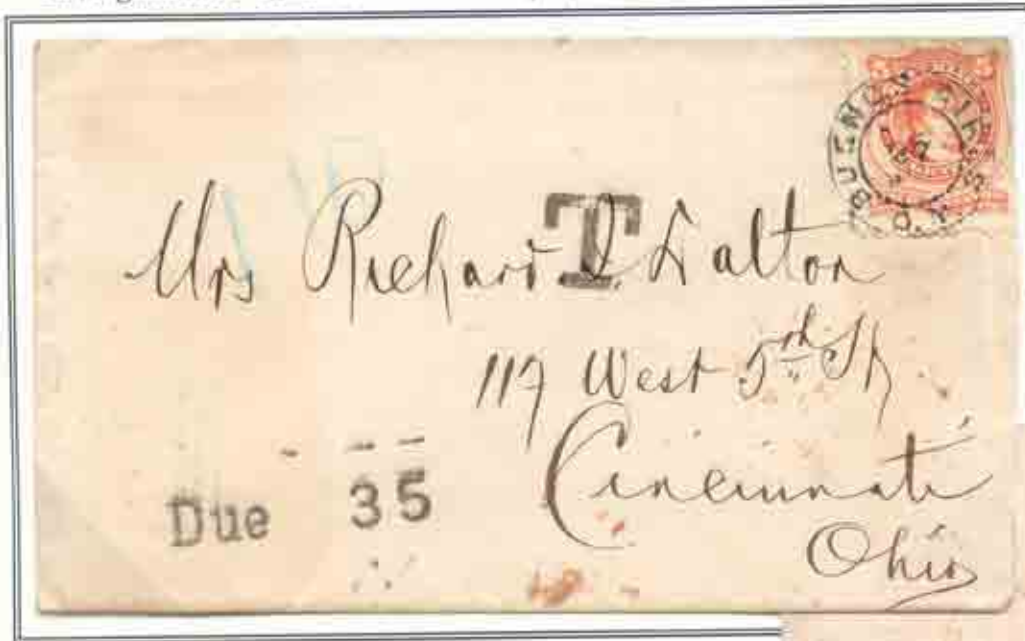 BUENOS AIRES
T
Mrs Richard Dalton
117 West 5th St
Cincinnati
Ohio
Due 35